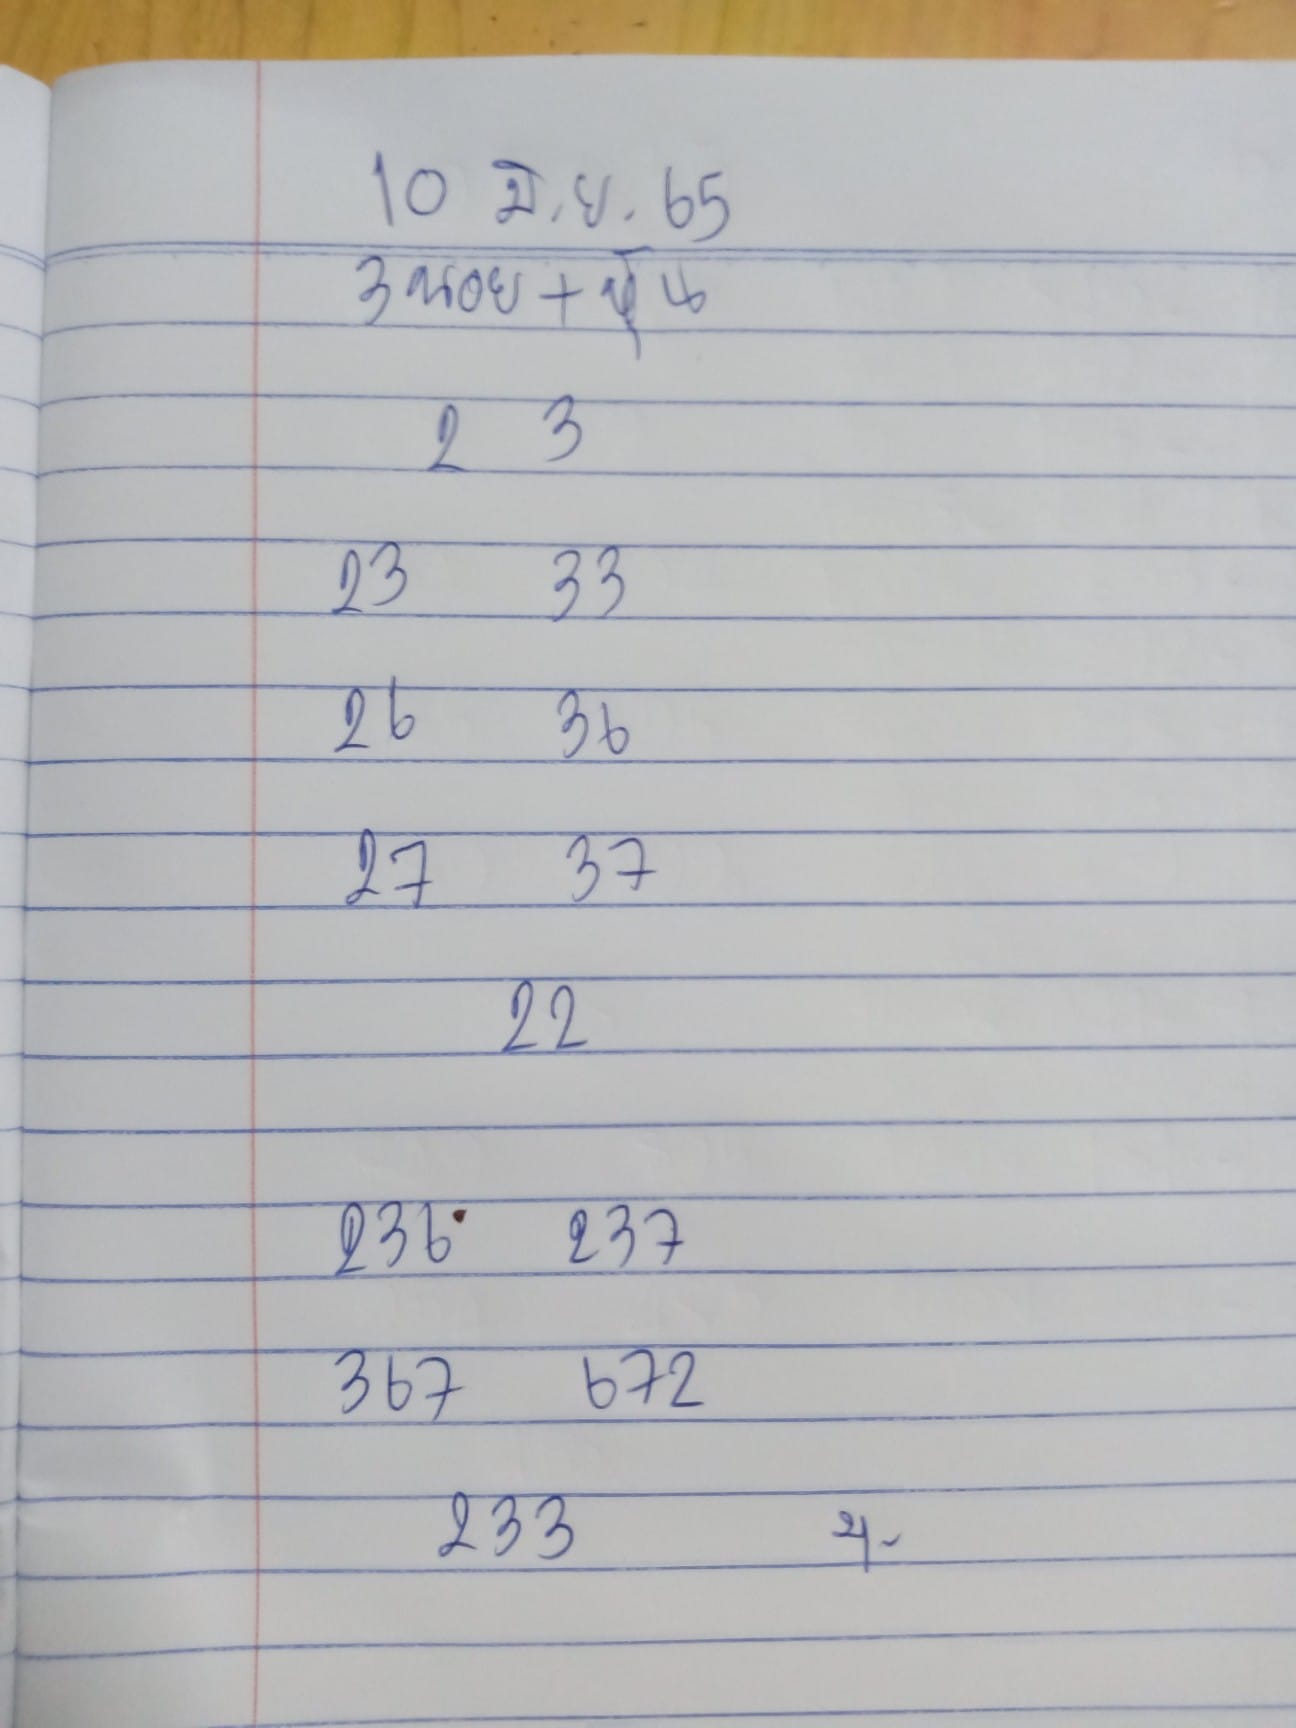 10 มิ.ย. 65
3 นอย + หุ้น
2 3
23 33
26 36
27 37
22
236 237
367 672
233